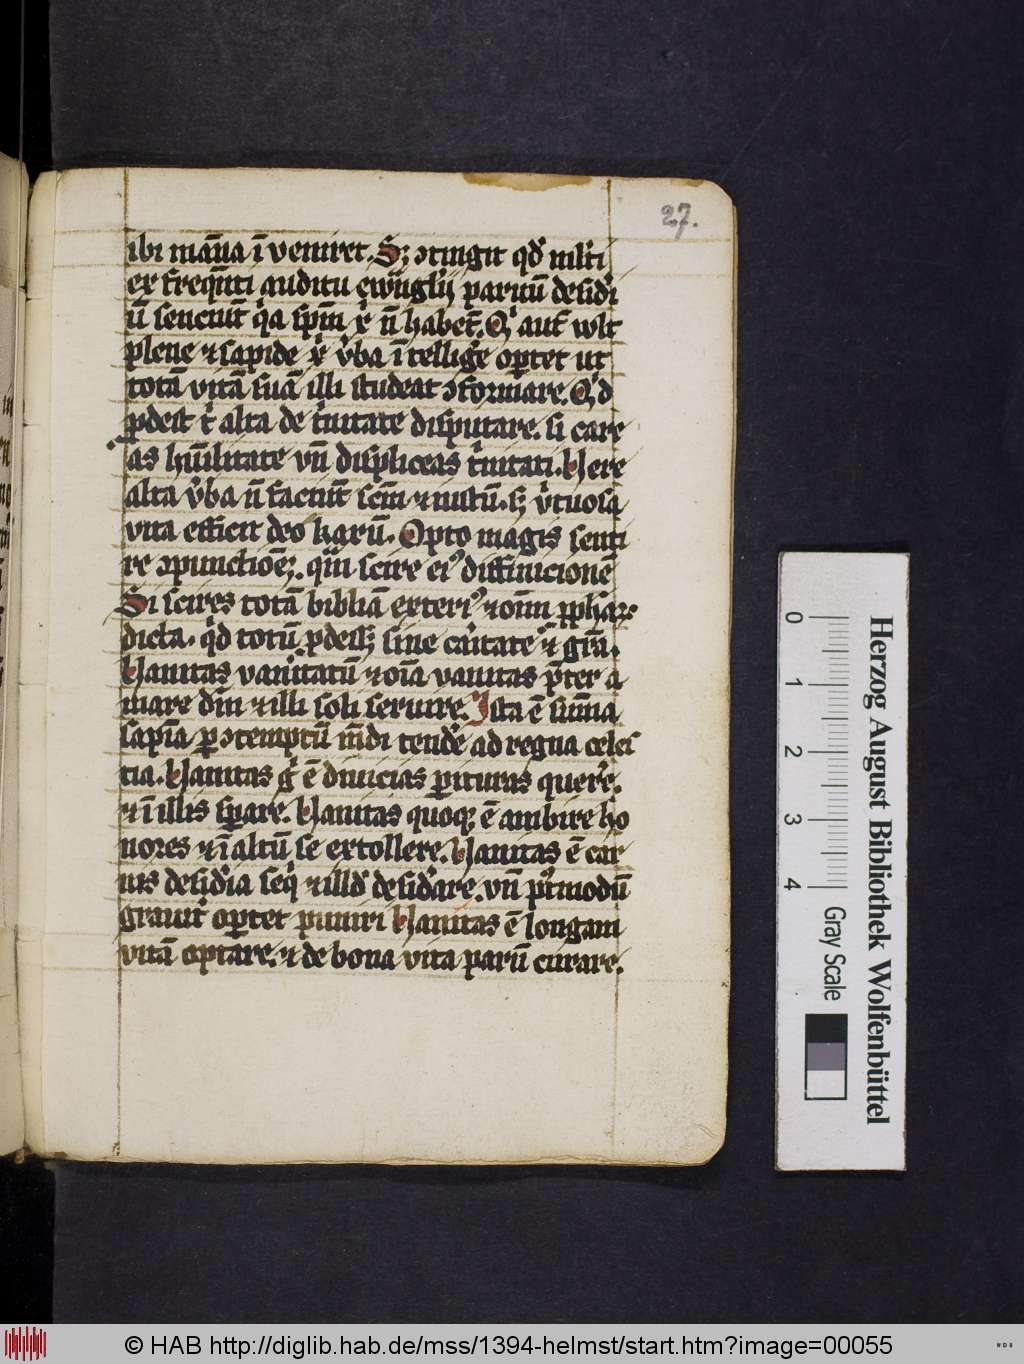 27.
ibi māna ī veniret. Sꝫ ɔtingit qd̕ ml̕ti
ex freq̄nti auditu ewāgl̕ij paruū desid̕i
ū senciūt q̓a spm̄ xp̄i n̄ habēt. Q̓ aut̄ wlt
plene ⁊ sapide xp̄i v̓ba ītellig̕e oportet ut
totā vitā suā illi studeat ɔformare. Q̓d
ꝓdest t̓ alta de t̓nitate disputare. si care
as hūilitate vn̄ displiceas t̓nitati. Vere
alta v̓ba n̄ faciūt scm̄ ⁊ iustū. sꝫ v̓tuosa
vita efficit deo karū. Opto magis senti
re ɔpunctōeꝫ. qm̄ scire ei᷒ diffinicionē
Si scires totā bibliā exteri᷒ ⁊ oīm ph̄oꝝ
dicta. q̓d totū ꝓdess̄ꝫ sine caritate ⁊ grā.
Vanitas vanitatū ⁊ oīa vanitas p̄ter a
mare dm̄ ⁊ illi soli seruire. Ista ē sūma
sapīa ꝑ ɔtemptū mūdi tend̕e ad regna celes
tia. Vanitas g̓ ē diuicias ꝑituras quer̕e.
⁊ ī illis sꝑare. Vanitas quoqꝫ ē ambire ho
nores ⁊ ī altū se extollere. Vanitas ē car
nis desid̕ia seq̓ ⁊ illd̕ desid̕are. vn̄ p̓tmodū
grauit̕ oꝑtet puniri Vanitas ē longam
vitā optare. ⁊ de bona vita parū curare.
Herzog August Bibliothek Wolfenbüttel
0 1 2 3 4 Gray Scale
© HAB http://diglib.hab.de/mss/1394-helmst/start.htm?image=00055